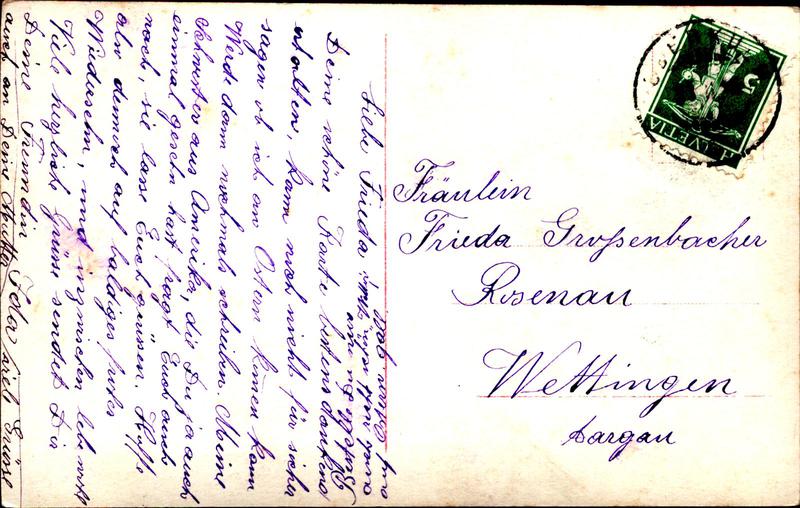 Liebe Frieda
Deine schöne Karte bestens dankend
erhalten, kann noch nicht für sicher
sagen ob ich an Ostern kommen kann
Werde dann nochmals schreiben. Meine
Schwester aus Amerika, die Du ja auch
einmal gesehn hast fragt Euch auch
nach, sie lasse Euch grüssen. Hoffe
also dennoch auf baldiges frohes
Wiedersehn, und inzwischen lebe wohl
Viele herzliche Grüsse sendet Dir
Deine Freundin Ida
auch an Deine Mutter viele Grüsse
HELVETIA
5
Fräulein
Frieda Großenbacher
Rosenau
Wettingen
Aargau